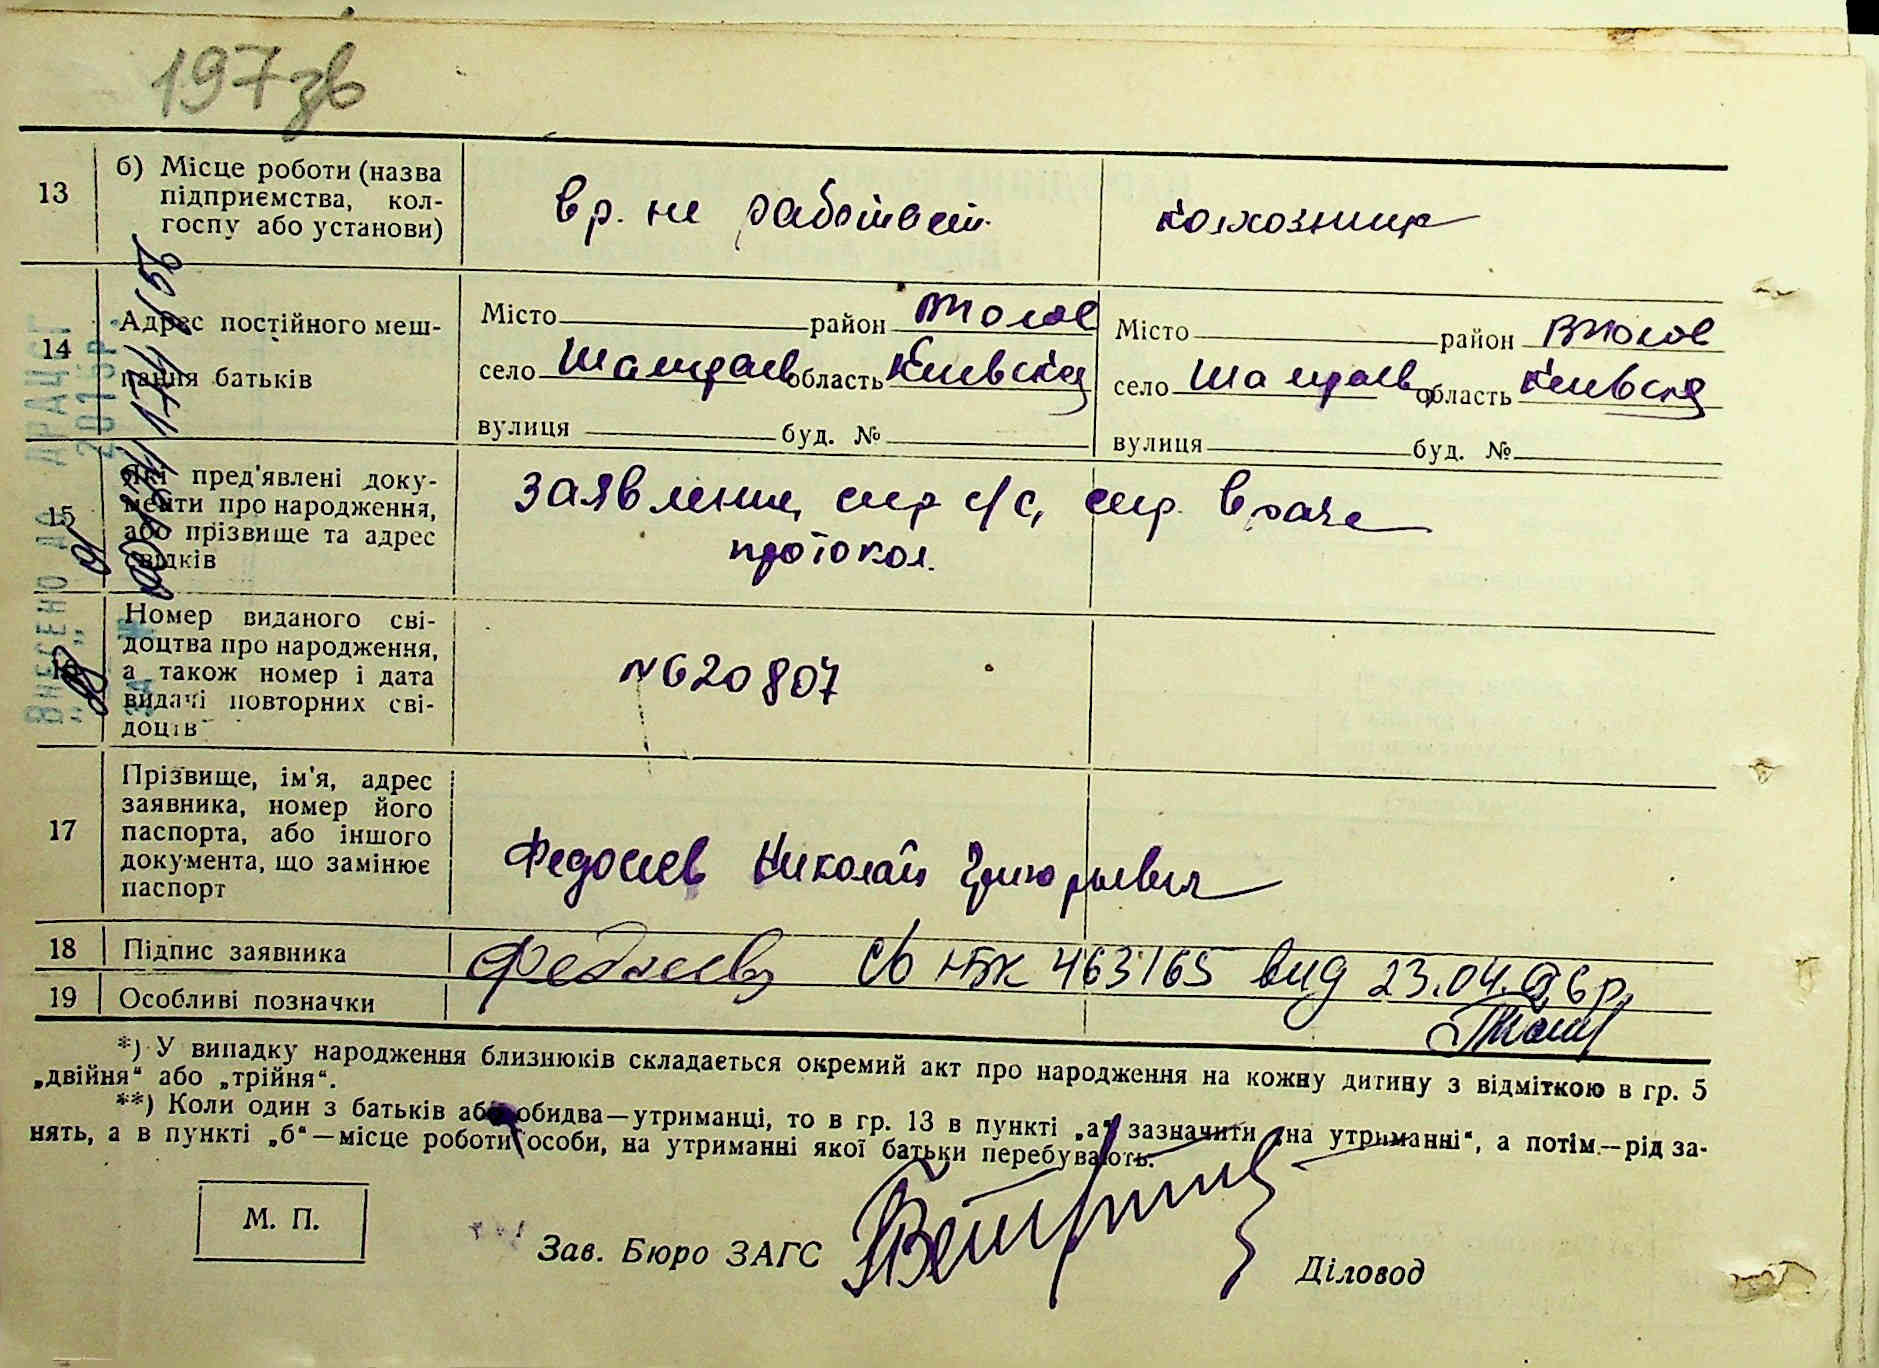 197зв
13
б) Місце роботи (назва
підприємства, кол-
госпу або установи)
вр. не работает.
колхозница
14
Адрес постійного меш-
кання батьків
Місто район
село Шамраев область Киевская
вулиця буд. №
Місто район
село Шамраев область Киевская
вулиця буд. №
15
Які пред'явлені доку-
менти про народження,
або прізвище та адрес
свідків
заявление, спр с/с, спр. врача
протокол.
16
Номер виданого сві-
доцтва про народження,
а також номер і дата
видачі повторних сві-
доцтв
N620807
17
Прізвище, ім'я, адрес
заявника, номер його
паспорта, або іншого
документа, що замінює
паспорт
Федосеев Николай Григорьевич
18
Підпис заявника
св І-БК 463165 вид 23.04.96р.
19
Особливі позначки
*) У випадку народження близнюків складається окремий акт про народження на кожну дитину з відміткою в гр. 5
„двійня“ або „трійня“.
**) Коли один з батьків або обидва—утриманці, то в гр. 13 в пункті „а“ зазначити „на утриманні“, а потім—рід за-
нять, а в пункті „б“—місце роботи особи, на утриманні якої батьки перебувають.
М. П.
Зав. Бюро ЗАГС
Діловод
ВНЕСЕНО ДО ДРАЦСГ